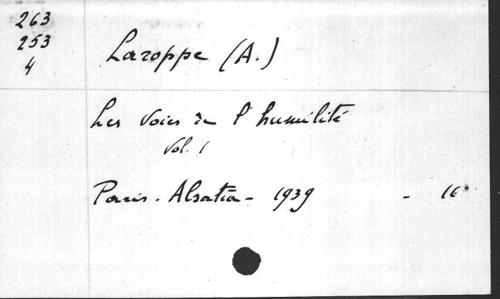 263
253
4
Laroppe (A.)
Les Voies de l'humilité
Vol. 1
Paris. Alsatia - 1939 - 16